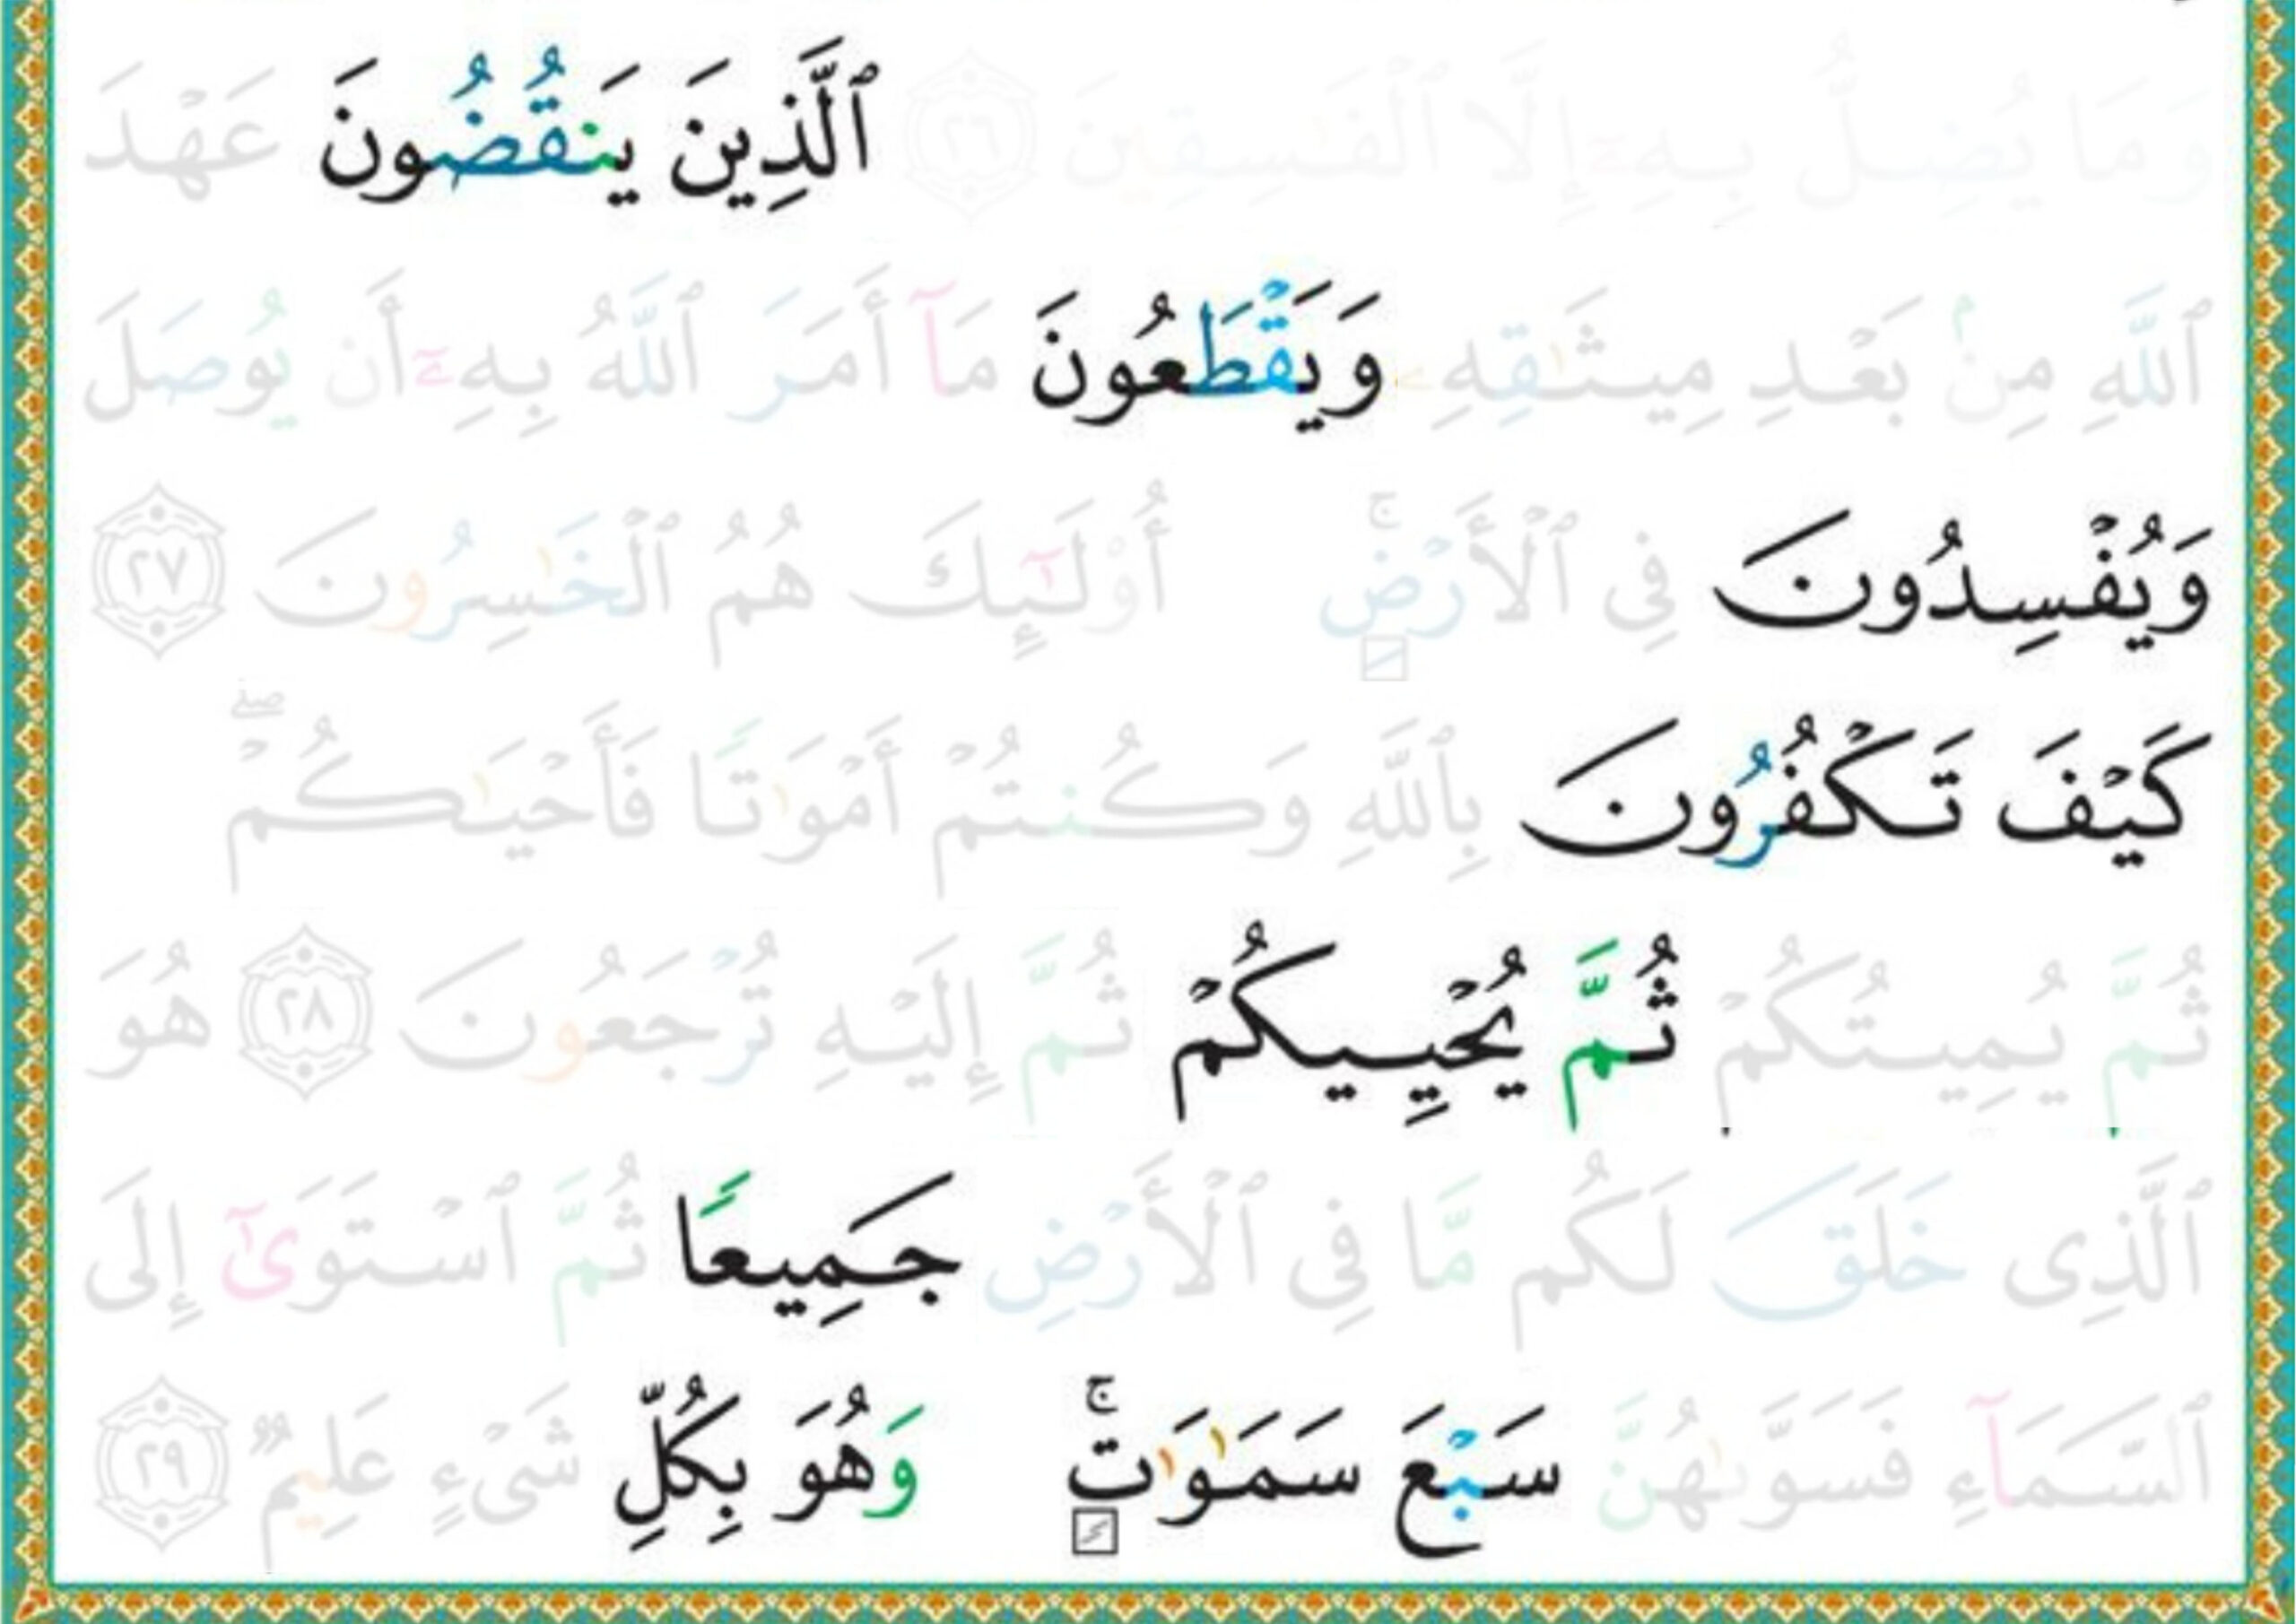 وَمَا يُضِلُّ بِهِۦٓ إِلَّا ٱلۡفَـٰسِقِينَ ٢٦ ٱلَّذِينَ يَنقُضُونَ عَهۡدَ
ٱللَّهِ مِنۢ بَعۡدِ مِيثَـٰقِهِۦ وَيَقۡطَعُونَ مَآ أَمَرَ ٱللَّهُ بِهِۦٓ أَن يُوصَلَ
وَيُفۡسِدُونَ فِى ٱلۡأَرۡضِۚ أُوْلَـٰٓئِكَ هُمُ ٱلۡخَـٰسِرُونَ ٢٧
كَيۡفَ تَكۡفُرُونَ بِٱللَّهِ وَكُنتُمۡ أَمۡوَٰتًا فَأَحۡيَـٰكُمۡۖ
ثُمَّ يُمِيتُكُمۡ ثُمَّ يُحۡيِيكُمۡ ثُمَّ إِلَيۡهِ تُرۡجَعُونَ ٢٨ هُوَ
ٱلَّذِى خَلَقَ لَكُم مَّا فِى ٱلۡأَرۡضِ جَمِيعًا ثُمَّ ٱسۡتَوَىٰٓ إِلَى
ٱلسَّمَآءِ فَسَوَّىٰهُنَّ سَبۡعَ سَمَـٰوَٰتٍۚ وَهُوَ بِكُلِّ شَىۡءٍ عَلِيمٌ ٢٩